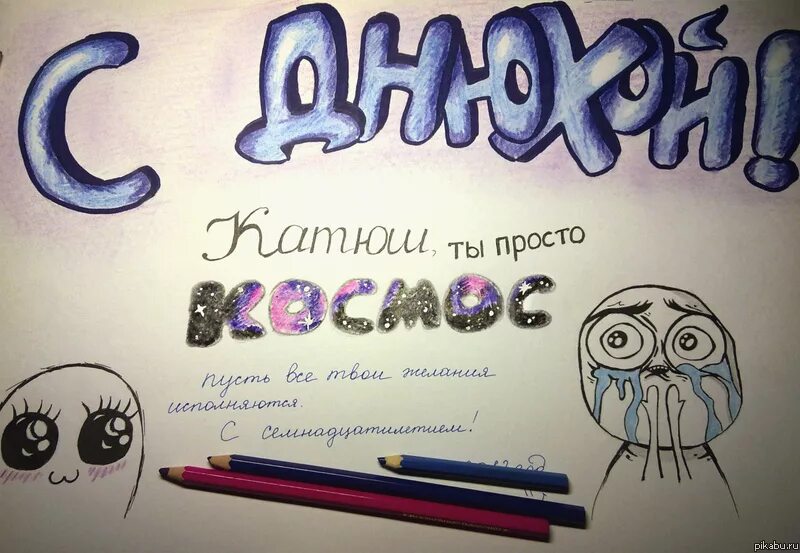 С ДНЮХОЙ!
Катюш, ты просто
КОСМОС
пусть все твои желания
исполняются.
С семнадцатилетием!
год
pikabu.ru